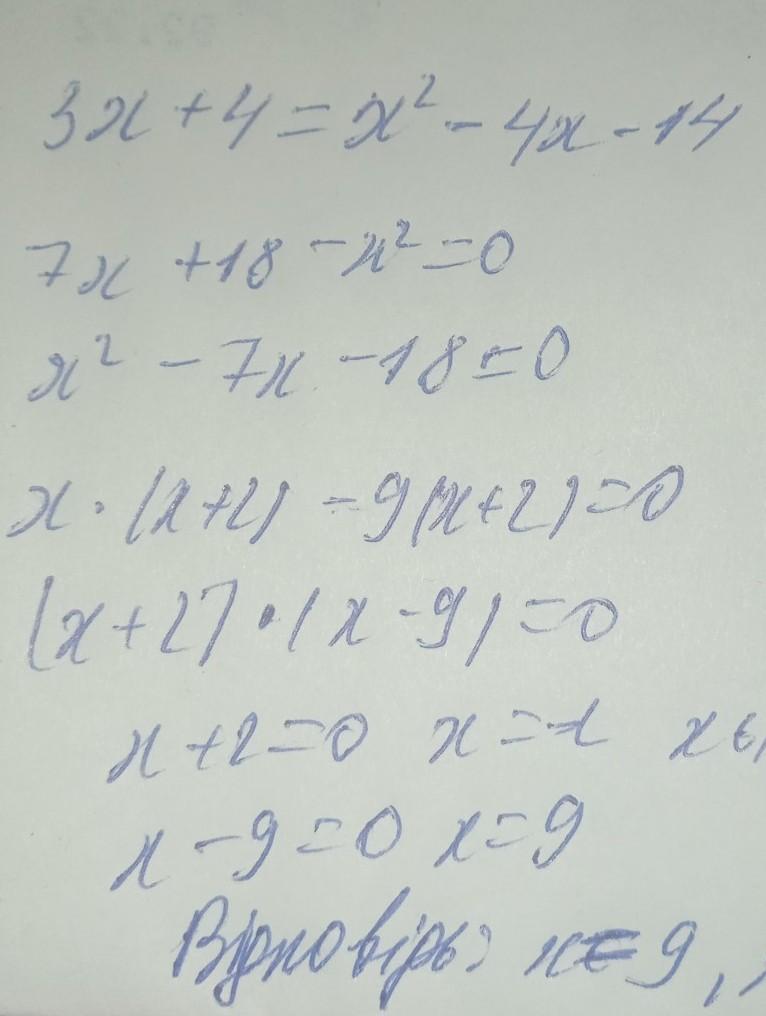 3x + 4 = x² - 4x - 14
7x + 18 - x² = 0
x² - 7x - 18 = 0
x · (x+2) - 9(x+2) = 0
(x+2) · (x - 9) = 0
x + 2 = 0 x = -2
x - 9 = 0 x = 9
Відповідь: x = 9,